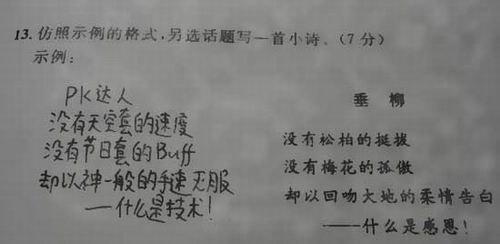 13. 仿照示例的格式,另选话题写一首小诗。(7分)
示例:
垂柳
没有松柏的挺拔
没有梅花的孤傲
却以回吻大地的柔情告白
——什么是感恩!
PK达人
没有天空套的速度
没有节日套的Buff
却以神一般的手速无服
——什么是技术!